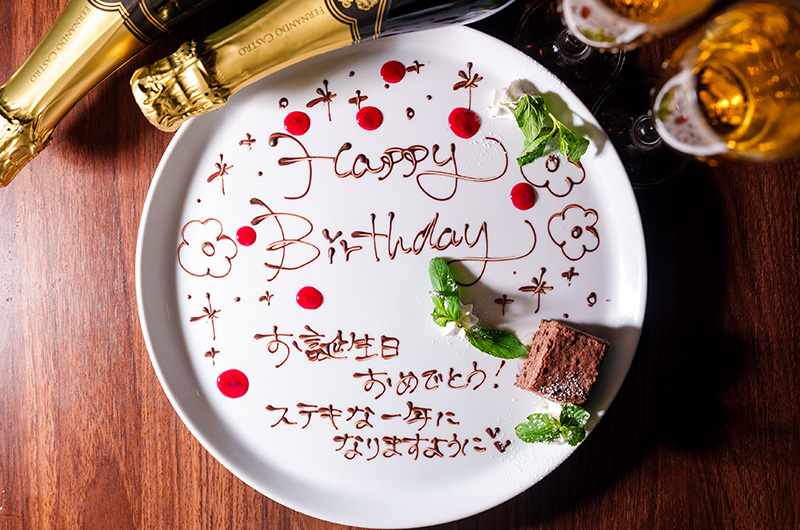 FERNANDO CASTRO
FERNANDO CASTRO
Happy
Birthday
お誕生日
おめでとう!
ステキな一年に
なりますように